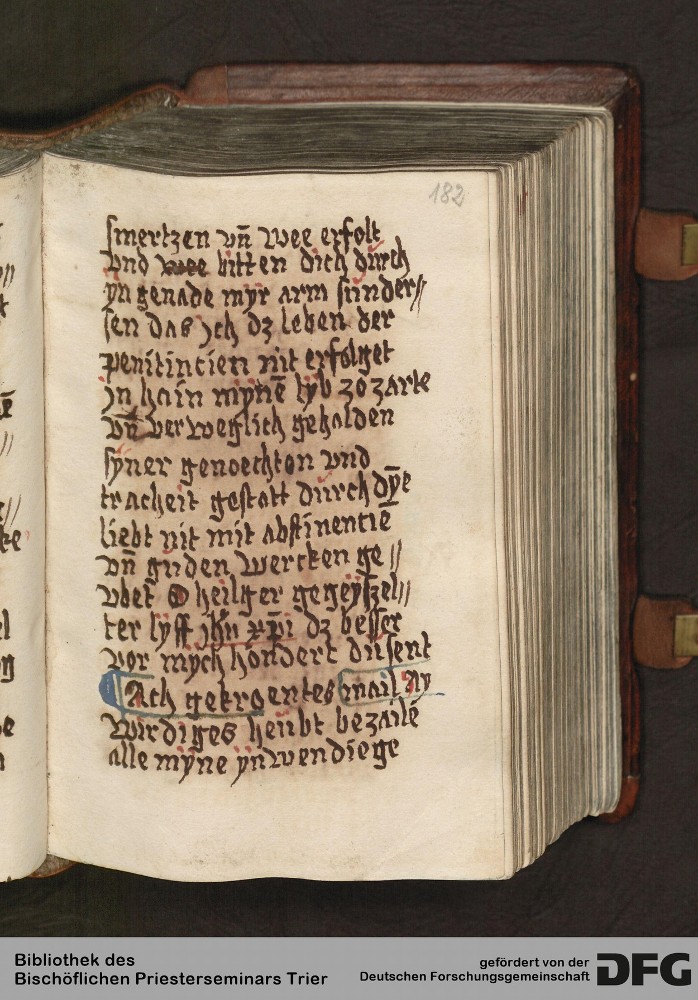 182
smertzen vn̄ wee erfolt
vnd wee bitten dich durch
yn genade myr arm sünder//
sen das jch dz leben der
penitincien nit erfolget
jn hain mynē lyb zo zarte
vn̄ verweglich gehalden
syner genoechten vnd
tracheit gestatt durch dȳe
liebt nit mit abstinenciē
vn̄ güden wercken ge//
vbet O heilger gegeyszel//
ter lyff jhū xp̄i dz besser
vor mych hondert dusent
Ach gekroentes mail Ay
wirdiges heubt bezaile
alle myne ynwendiege
Bibliothek des
Bischöflichen Priesterseminars Trier
gefördert von der
Deutschen Forschungsgemeinschaft DFG